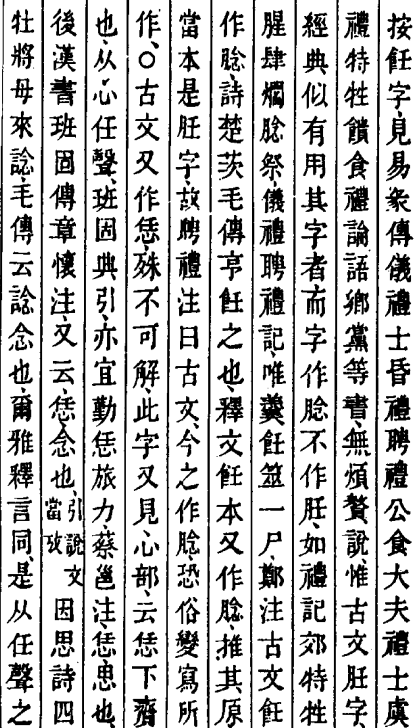 按飪字、見易彖傳儀禮士昏禮聘禮公食大夫禮士虞
禮特牲饋食禮論語鄉黨等書、無煩贅說、惟古文胚字、
經典似有用其字者而字作腍不作胚、如禮記郊特牲
腥肆爓腍祭、儀禮聘禮記、唯羹飪筮一尸、鄭注古文飪
作腍、詩楚茨毛傳亨飪之也、釋文飪本又作腍、推其原
當本是胚字、故聘禮注曰古文、今之作腍、恐俗變寫所
作、○古文又作恁、殊不可解、此字又見心部、云恁下齎
也、从心任聲、班固典引、亦宜勤恁旅力、蔡邕注、恁、思也、
後漢書班固傳章懷注、又云、恁、念也、引說文當攷因思詩四
牡將母來諗、毛傳云諗念也、爾雅釋言同、是从任聲之